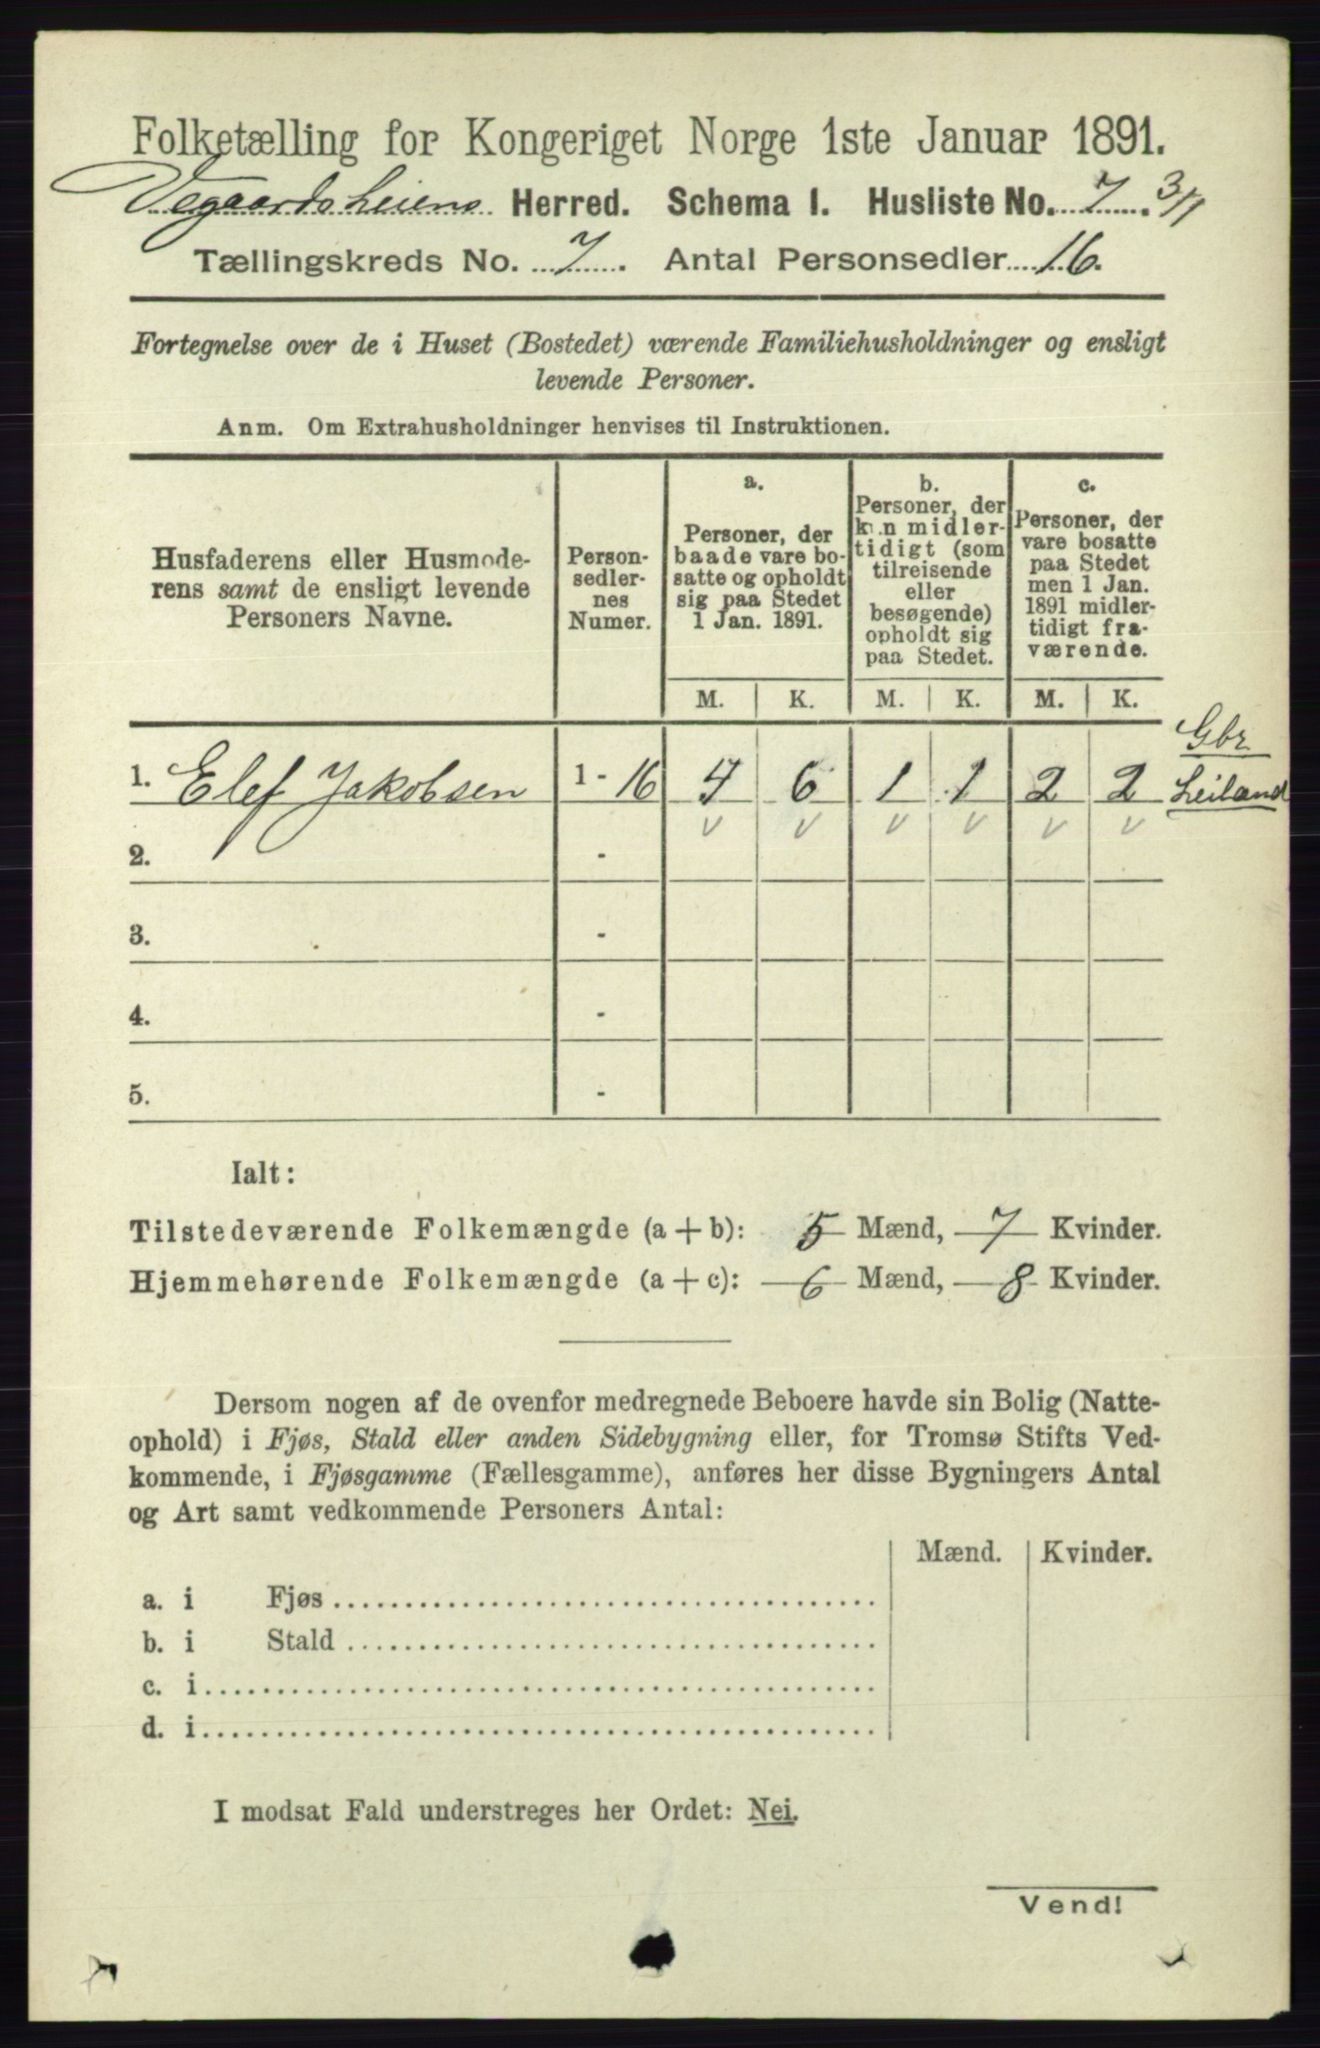 Folketælling for Kongeriget Norge 1ste Januar 1891.
Vegaardsheiens Herred. Schema I. Husliste No. 7. 3/1
Tællingskreds No. 7. Antal Personsedler 16.
Fortegnelse over de i Huset (Bostedet) værende Familiehusholdninger og ensligt
levende Personer.
Anm. Om Extrahusholdninger henvises til Instruktionen.
Husfaderens eller Husmode-
rens samt de ensligt levende
Personers Navne.
Person-
sedler-
nes
Numer.
a.
Personer, der
baade vare bo-
satte og opholdt
sig paa Stedet
1 Jan. 1891.
b.
Personer, der
kun midler-
tidigt (som
tilreisende
eller
besøgende)
opholdt sig
paa Stedet.
c.
Personer, der
vare bosatte
paa Stedet
men 1 Jan.
1891 midler-
tidigt fra-
værende.
M. K. M. K. M. K.
Gbr
1. Elef Jakobsen 1 - 16 4 6 1 1 2 2 Leiland
v v v v v v
2. -
3. -
4. -
5. -
Ialt:
Tilstedeværende Folkemængde (a + b): 5 Mænd, 7 Kvinder.
Hjemmehørende Folkemængde (a + c): 6 Mænd, 8 Kvinder.
Dersom nogen af de ovenfor medregnede Beboere havde sin Bolig (Natte-
ophold) i Fjøs, Stald eller anden Sidebygning eller, for Tromsø Stifts Ved-
kommende, i Fjøsgamme (Fællesgamme), anføres her disse Bygningers Antal
og Art samt vedkommende Personers Antal:
Mænd. Kvinder.
a. i Fjøs
b. i Stald
c. i
d. i
I modsat Fald understreges her Ordet: Nei.
Vend!